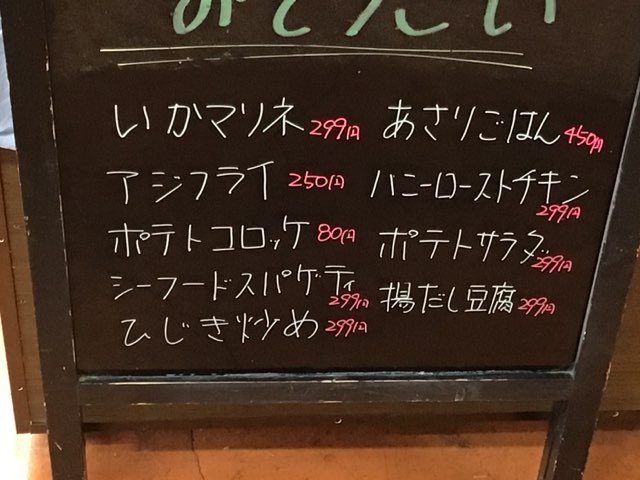 いかマリネ 299円
アジフライ 250円
ポテトコロッケ 80円
シーフードスパゲティ 299円
ひじき炒め 299円
あさりごはん 450円
ハニーローストチキン 299円
ポテトサラダ 299円
揚だし豆腐 299円